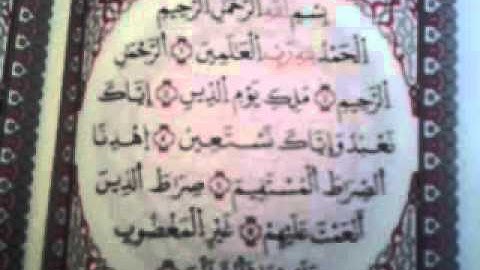 بِسْمِ اللهِ الرَّحْمٰنِ الرَّحِيمِ
اَلْحَمْدُ لِلّٰهِ رَبِّ الْعَالَمِينَ ۝ اَلرَّحْمٰنِ
الرَّحِيمِ ۝ مَالِكِ يَوْمِ الدِّينِ ۝ اِيَّاكَ
نَعْبُدُ وَاِيَّاكَ نَسْتَعِينُ ۝ اِهْدِنَا
الصِّرَاطَ الْمُسْتَقِيمَ ۝ صِرَاطَ الَّذِينَ
اَنْعَمْتَ عَلَيْهِمْ ۝ غَيْرِ الْمَغْضُوبِ